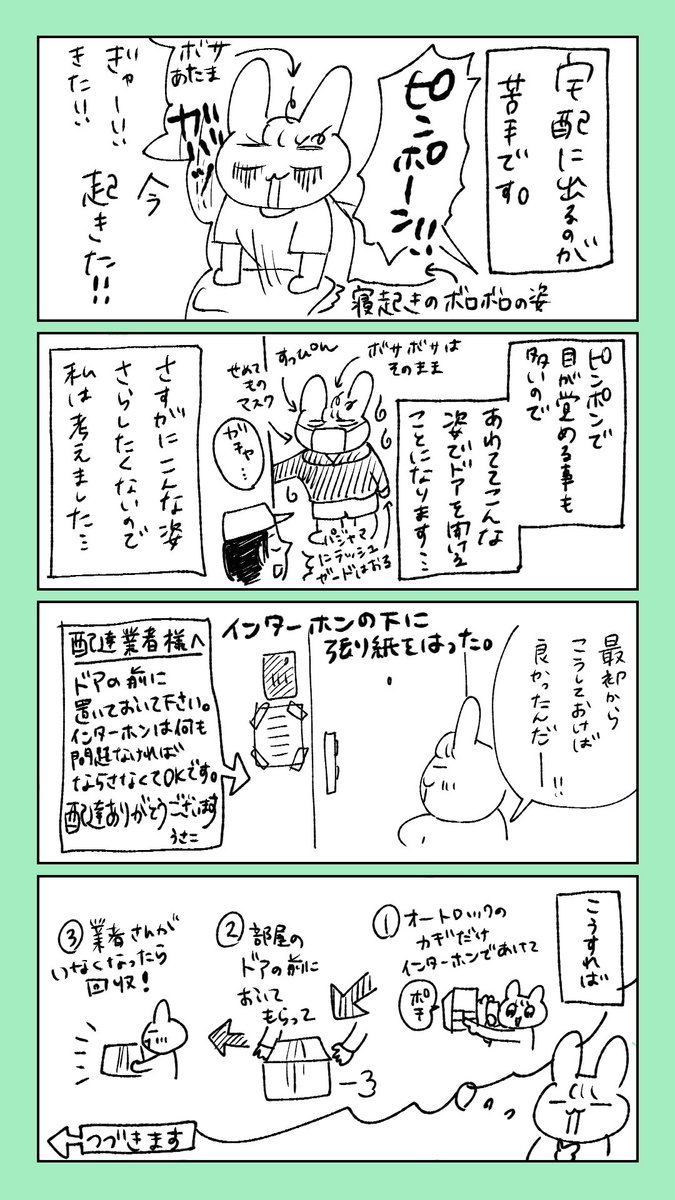 宅配に出るのが
苦手です。
ピンポーン!!
寝起きのボロボロの姿
ボサ
あたま
ガバッ
今
起きた!!
ぎゃーい!
きた!!
ピンポンで
目が覚める事も
多いので
あわててこんな
姿でドアを開ける
ことになります…
ボサボサは
そのまま
すっぴん
せめて
もの
マスク
ガチャ…
パジャマ
にラッシュ
ガードはおる
さすがにこんな姿
さらしたくないので
私は考えました…
最初から
こうしておけば
良かったんだー!!
インターホンの下に
張り紙をはった。
配達業者様へ
ドアの前に
置いておいて下さい。
インターホンは何も
問題なければ
ならさなくてOKです。
配達ありがとうございます
うさこ
こうすれば
①オートロックの
カギだけ
インターホンであけて
ポチ
②部屋の
ドアの前に
おいて
もらって
③業者さんが
いなくなったら
回収!
つづきます